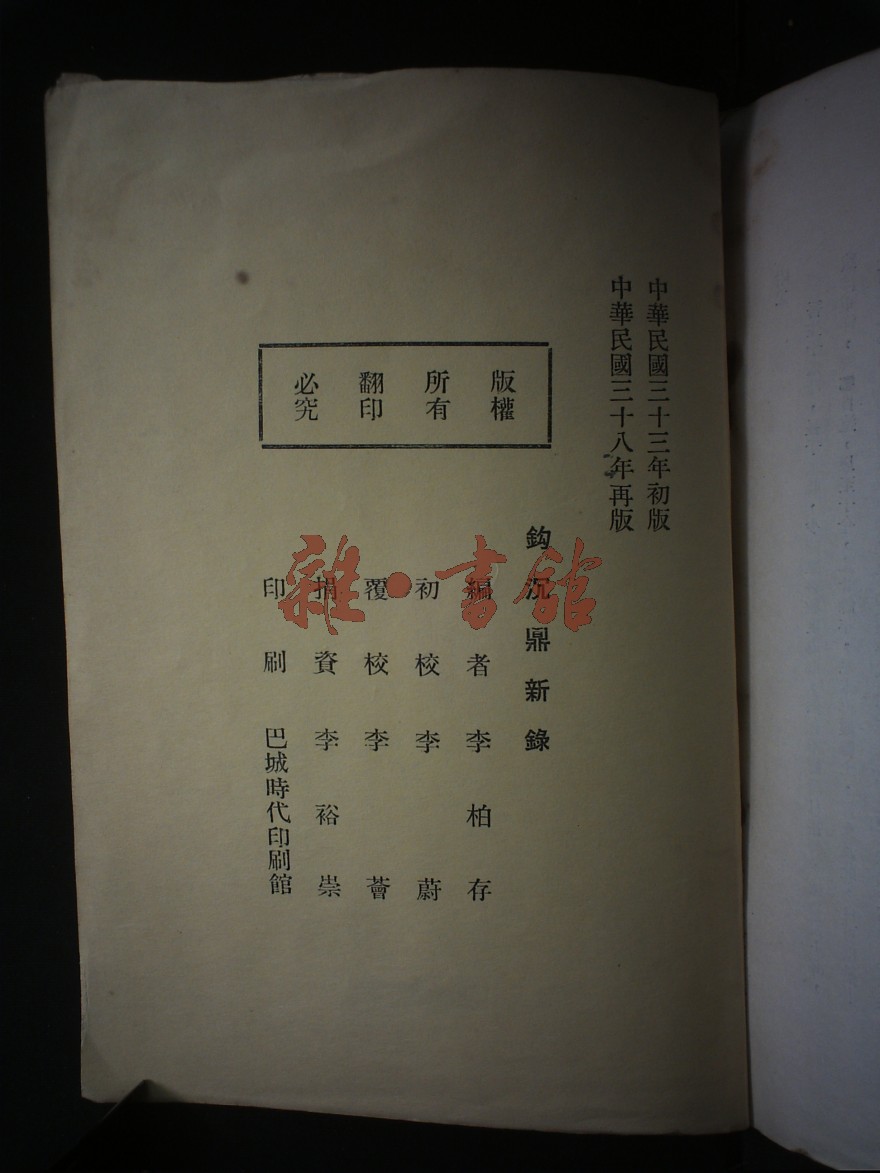 中華民國三十三年初版
中華民國三十八年再版
版權
所有
翻印
必究
鈎沉鼎新錄
編者李柏存
初校李蔚
覆校李薈
捐資李裕崇
印刷巴城時代印刷館
雜·書館